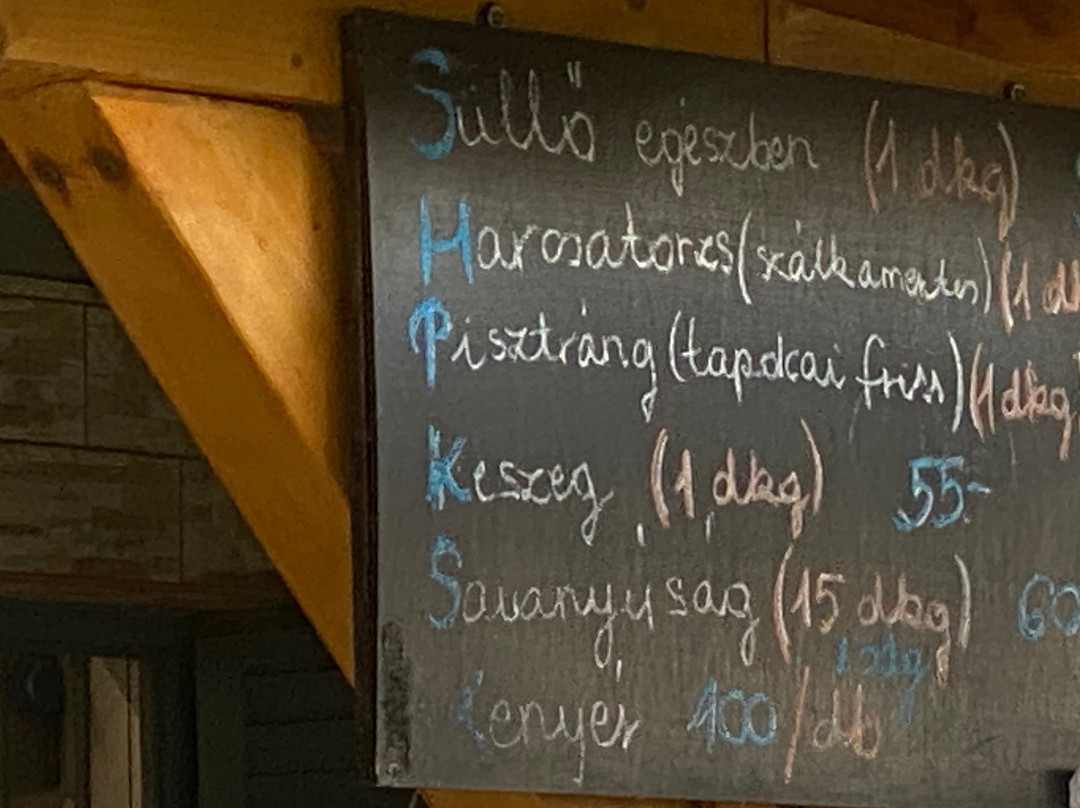 Süllő egészben (1 dkg)
Harcsatorzs (szálkamentes) (1 dk
Pisztráng (tapolcai friss) (1 dkg
Keszeg (1 dkg) 55.-
Savanyúság (15 dkg) 60
Kenyér 100/db